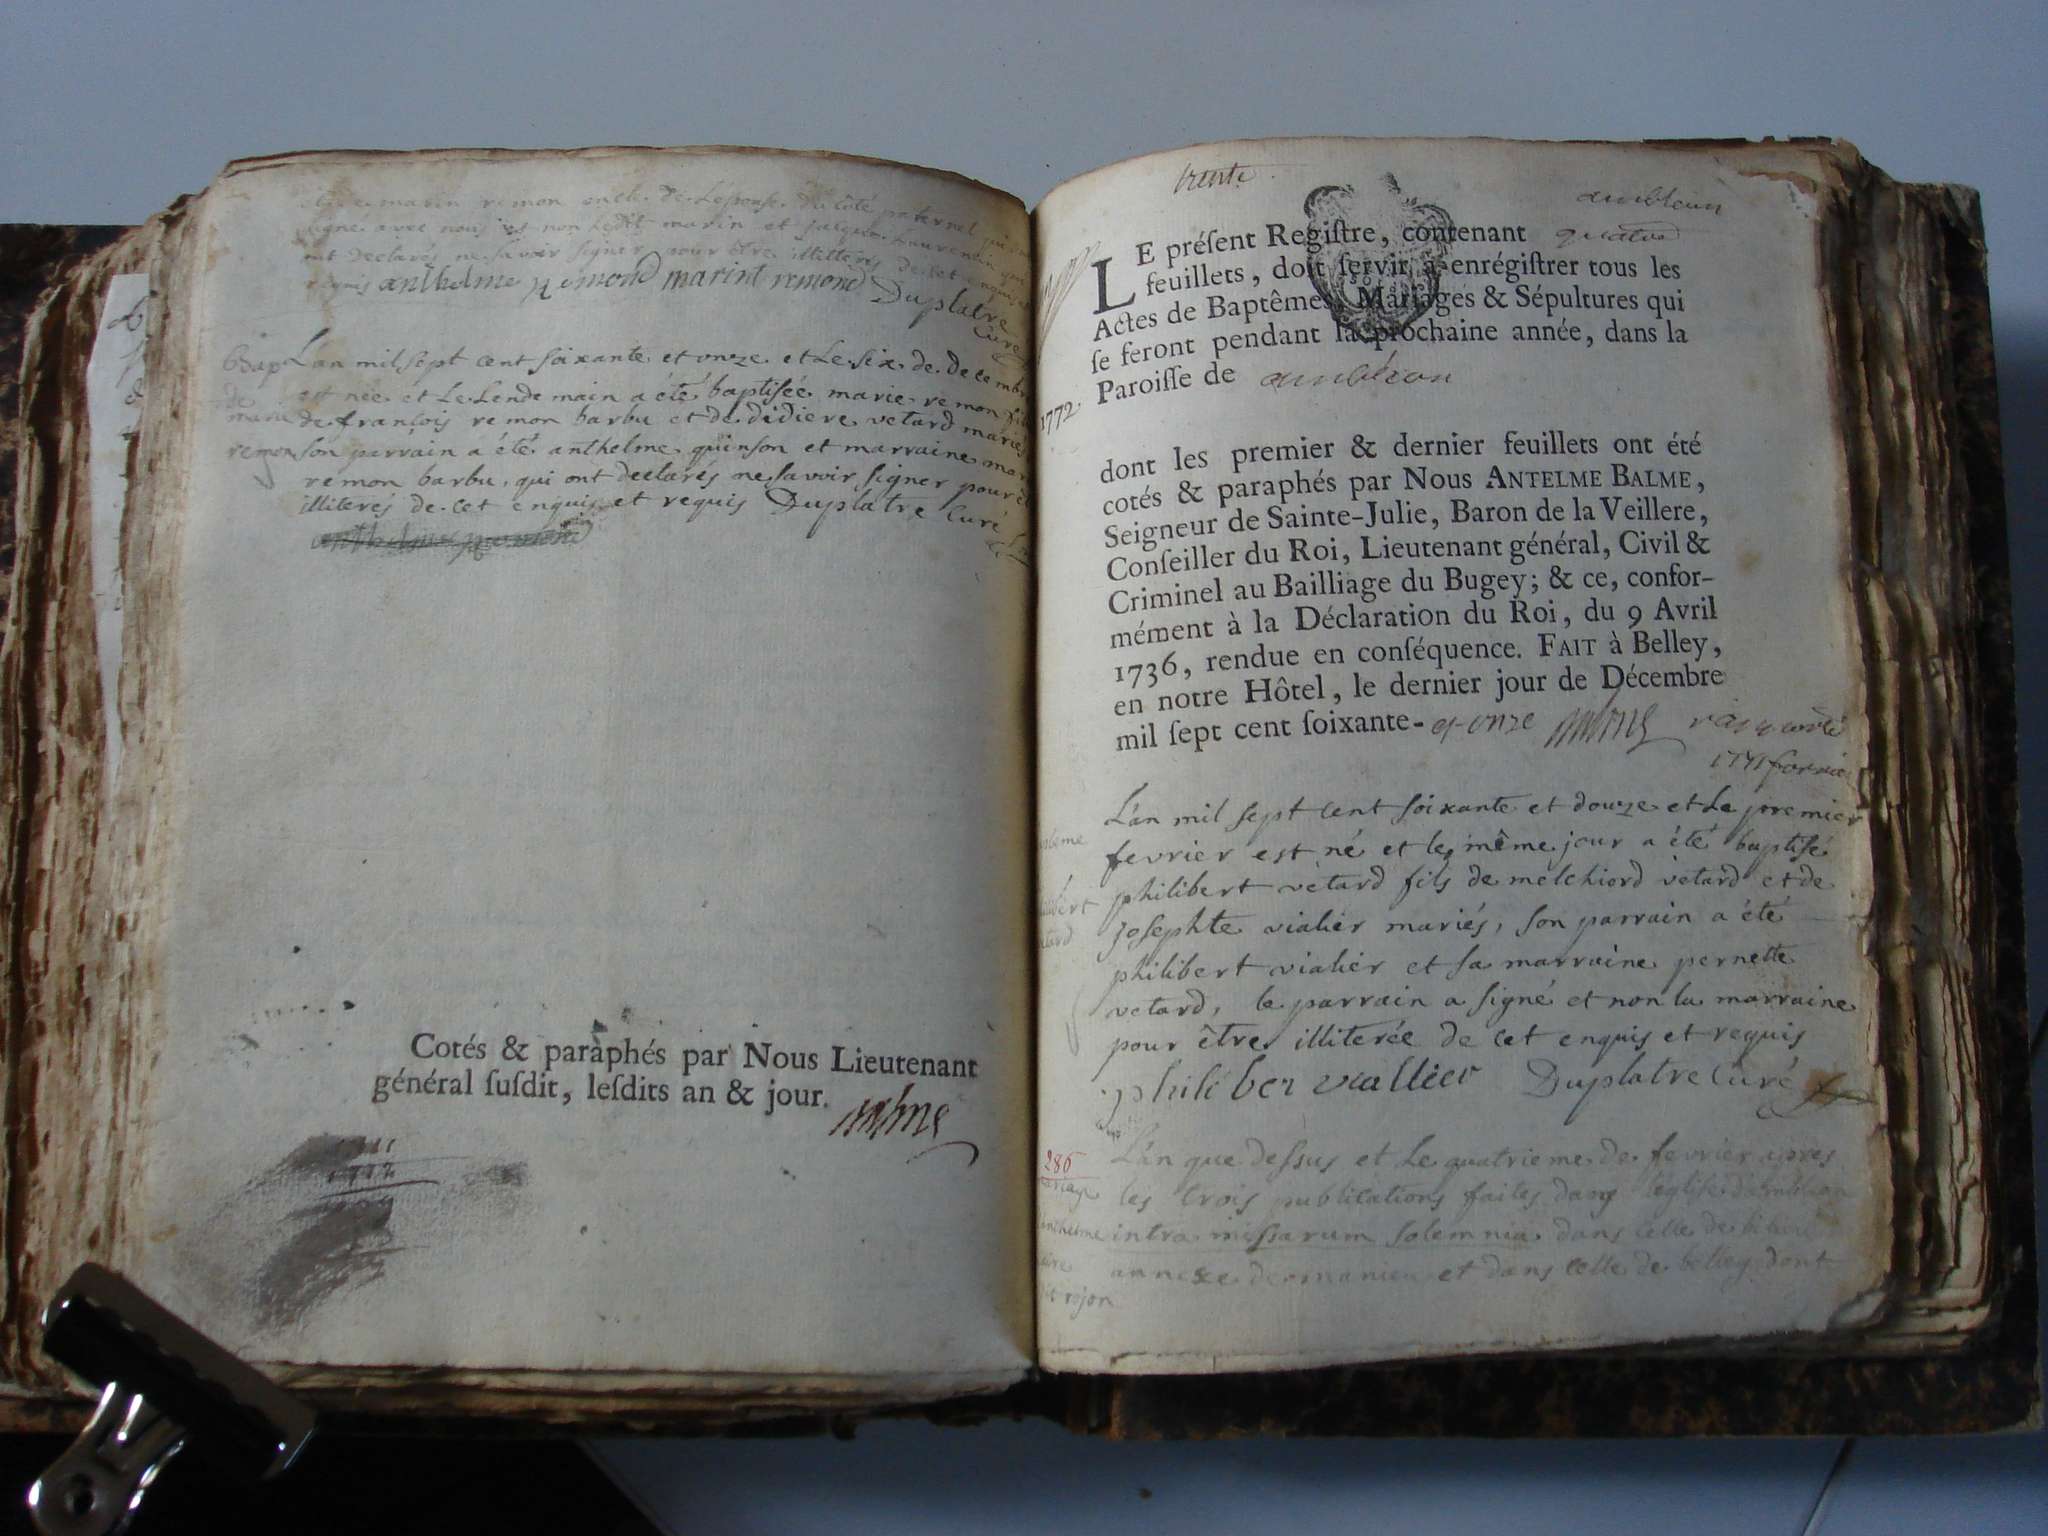 marin remon oncle de Lepouse du côté paternel qui
signé avec nous et non ledit marin et jacque Laurencin qui
ont declarés ne savoir signer pour être illiterés de cet enquis et
requis anthelme remond marint remond Duplatre
Curé
Bap L'an mil sept cent soixante et onze et Le six de decembre
de est née et Le Lendemain a été baptisée marie remon fille
marie de françois remon barbu et de didiere vetard mariés
remon son parrain a été anthelme quinson et marraine
remon barbu, qui ont declarés ne savoir signer pour
illiterés de cet enquis et requis Duplatre Curé
Cotés & paraphés par Nous Lieutenant
général susdit, lesdits an & jour. Balme
1772
trente
ambleon
LE présent Registre, contenant quatre
feuillets, doit servir à enrégistrer tous les
Actes de Baptêmes, Mariages & Sépultures qui
se feront pendant la prochaine année, dans la
Paroisse de ambléon
1772
dont les premier & dernier feuillets ont été
cotés & paraphés par Nous ANTELME BALME,
Seigneur de Sainte-Julie, Baron de la Veillere,
Conseiller du Roi, Lieutenant général, Civil &
Criminel au Bailliage du Bugey; & ce, confor-
mément à la Déclaration du Roi, du 9 Avril
1736, rendue en conséquence. FAIT à Belley,
en notre Hôtel, le dernier jour de Décembre
mil sept cent soixante- et onze Balme
L'an mil sept cent soixante et douze et Le premier
fevrier est né et le même jour a été baptisé
philibert vetard fils de melchiord vetard et de
josephte vialier mariés, son parrain a été
philibert vialier et sa marraine pernette
vetard, le parrain a signé et non la marraine
pour être illiterée de cet enquis et requis
philiber viallier Duplatre Curé
286 L'an que dessus et Le quatrieme de fevrier apres
mariage les trois publications faites dans l'église d'ambleon
anthelme intra missarum solemnia dans celle de
annexe et dans celle de belley dont